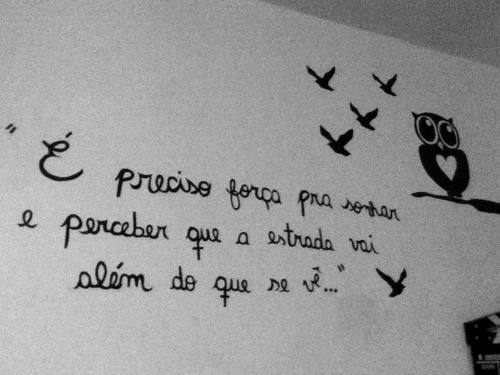 "É preciso força pra sonhar
e perceber que a estrada vai
além do que se vê..."